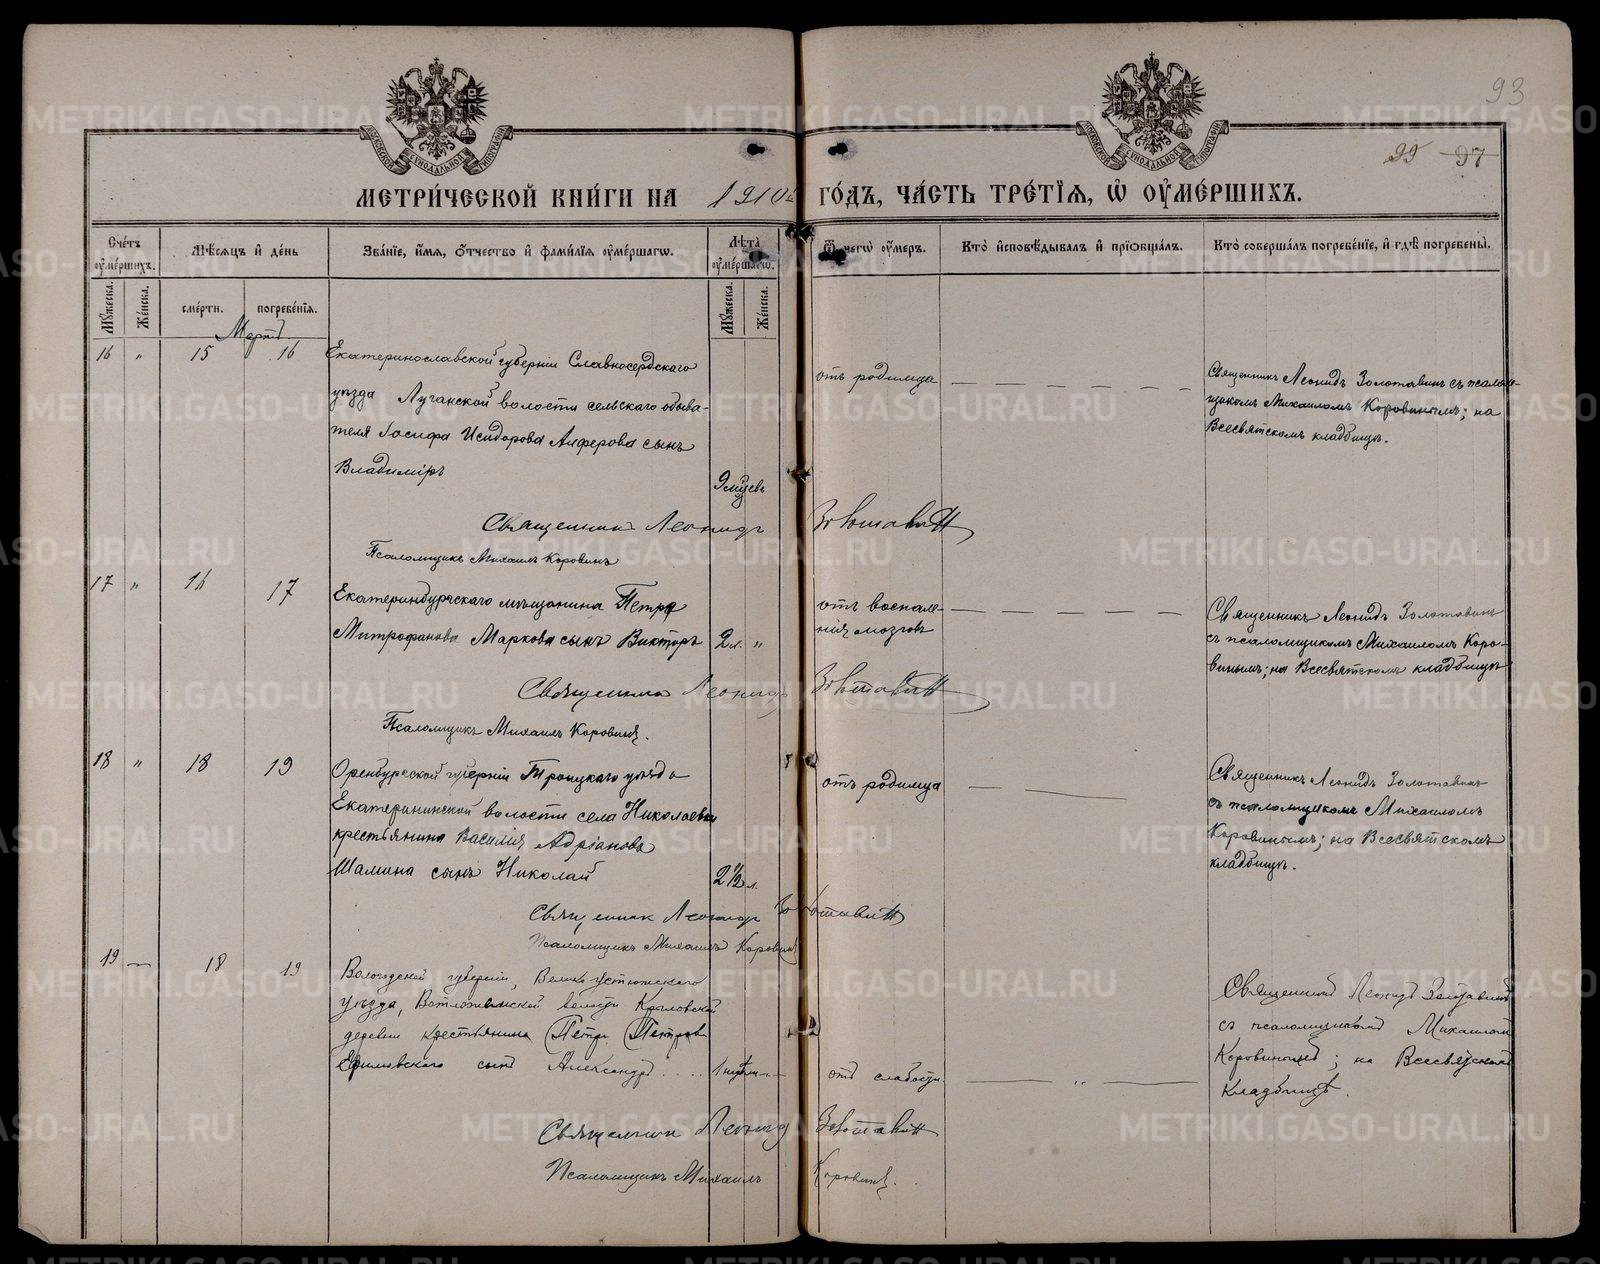 93
99 97
МЕТРИ́ЧЕСКОЙ КНИ́ГИ НА 1910й ГО́ДЪ, ЧА́СТЬ ТРЕ́ТІѦ, Ѡ҆ ОУ҆МЕ́РШИХЪ.
Сче́тъ оу҆ме́ршихъ.
Мѣ́сѧцъ и҆ де́нь
Зва́ніе, и҆́мѧ, ѻ҆́тчество и҆ фами́лїѧ оу҆ме́ршагѡ.
Лѣ̑та оу҆ме́ршагѡ.
Ѿ чегѡ̀ оу҆́меръ.
Кто̀ и҆сповѣ́дывалъ и҆ прїѡбща́лъ.
Кто̀ соверша́лъ погребе́ніе, и҆ гдѣ̀ погребены̀.
Мꙋ́жеска.
Же́нска.
сме́рти.
погребе́нїѧ.
Мꙋ́жеска.
Же́нска.
Мартъ
16 " 15 16
Екатеринославской губерніи Славяносердскаго
уѣзда Луганской волости сельскаго обыва-
теля Іосифа Исидорова Алферова сынъ
Владиміръ
9 мѣсяцевъ
отъ родимца
Священникъ Леонидъ Золотавинъ съ псалом-
щикомъ Михаиломъ Коровинымъ; на
Всесвятскомъ кладбищѣ.
Священникъ Леонидъ Золотавинъ
Псаломщикъ Михаилъ Коровинъ
17 " 16 17
Екатеринбургскаго мѣщанина Петра
Митрофанова Маркова сынъ Викторъ
2 л. "
отъ воспале-
нія мозговъ
Священникъ Леонидъ Золотавинъ
съ псаломщикомъ Михаиломъ Коро-
винымъ; на Всесвятскомъ кладбищѣ
Священникъ Леонидъ Золотавинъ
Псаломщикъ Михаилъ Коровинъ.
18 " 18 19
Оренбургской губерніи Троицкаго уѣзда
Екатерининской волости села Николаевки
крестьянина Василія Адріанова
Шамина сынъ Николай
2 1/2 л.
отъ родимца
Священникъ Леонидъ Золотавинъ
съ псаломщикомъ Михаиломъ
Коровинымъ; на Всесвятскомъ
кладбищѣ.
Священникъ Леонидъ Золотавинъ
Псаломщикъ Михаилъ Коровинъ
19 — 18 19
Вологодской губерніи, Велико-Устюгскаго
уѣзда, волости
деревни крестьянина Петра Петрова
сынъ Александръ
отъ слабости
"
Священникъ Леонидъ Золотавинъ
съ псаломщикомъ Михаиломъ
Коровинымъ; на Всесвятскомъ
кладбищѣ.
Священникъ Леонидъ Золотавинъ
Псаломщикъ Михаилъ Коровинъ.
METRIKI.GASO-URAL.RU